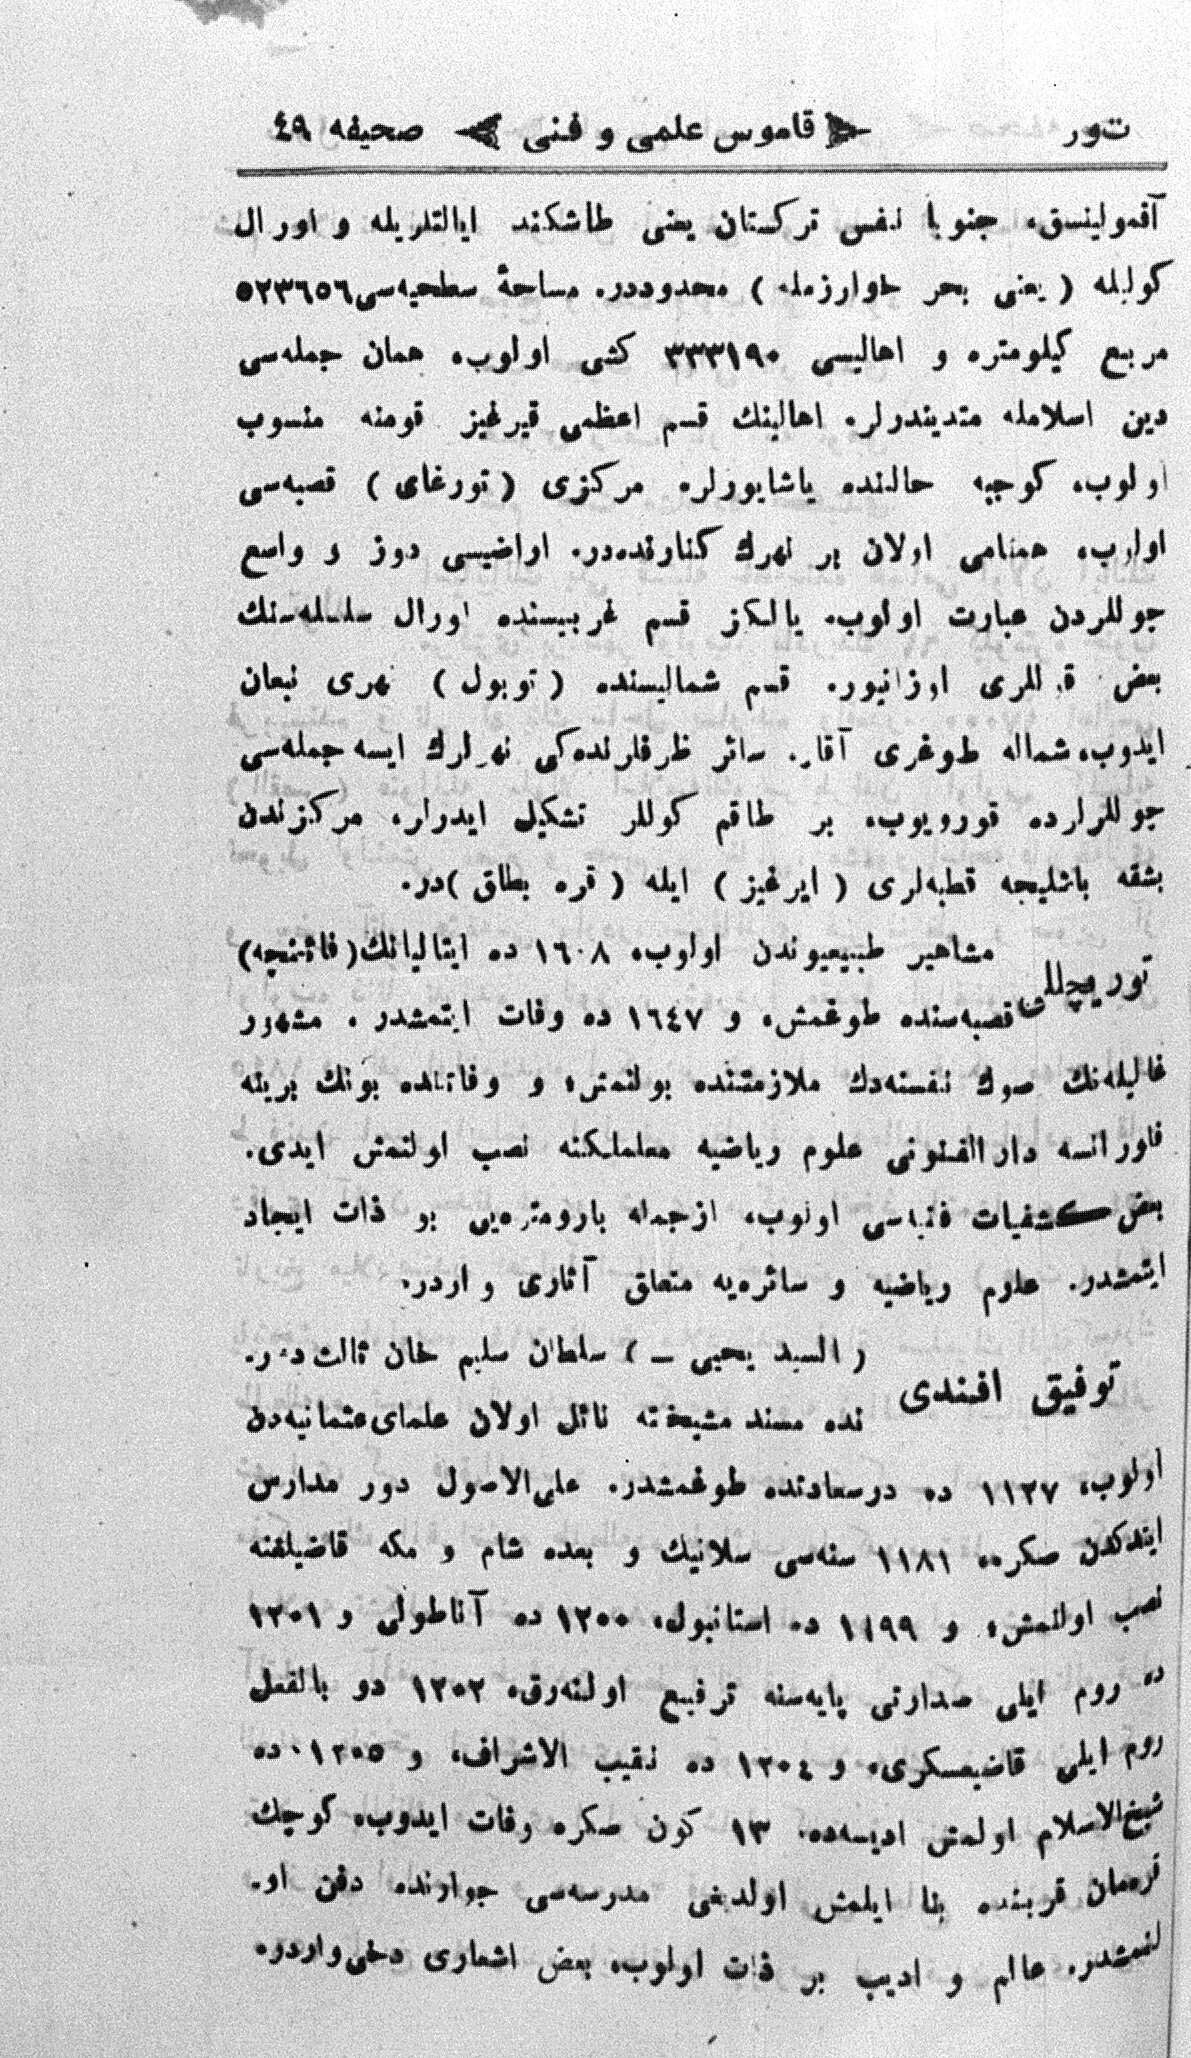 تور قاموس علمی و فنی صحیفه ٤٩
آقمولینسق، جنوبا نفس ترکستان یعنی طاشکند ایالتلریله و اورال
کولیله ( یعنی بحر خوارزمله ) محدوددر. مساحهٔ سطحیه‌سی ٥٢٣٦٥٦
مربع کیلومتره و اهالیسی ٣٣٣١٩٠ کشی اولوب، همان جمله‌سی
دین اسلامله متدیندرلر. اهالینك قسم اعظمی قیرغیز قومنه منسوب
اولوب، کوچبه حالنده یاشایورلر. مرکزی ( تورغای ) قصبه‌سی
اولوب، همنامی اولان بر نهرك کنارنده‌در. اراضیسی دوز و واسع
چوللردن عبارت اولوب، یالکز قسم غربیسنده اورال سلسله‌سنك
بعض قوللری اوزانیور. قسم شمالیسنده ( توبول ) نهری نبعان
ایدوب، شماله طوغری آقار. سائر طرفلرنده‌کی نهرلرك ایسه جمله‌سی
چوللرلرده قورویوب، بر طاقم کوللر تشکیل ایدرلر، مرکزندن
بشقه باشلیجه قصبه‌لری ( ایرغیز ) ایله ( قره بطاق )در.
توریچللی مشاهیر طبیعیوندن اولوب، ١٦٠٨ ده ایتالیانك (فائنچه)
قصبه‌سنده طوغمش، و ١٦٤٧ ده وفات ایتمشدر. مشهور
غالیله‌نك صوك نفسنه‌دك ملازمتنده بولنمش، و وفاتنده بونك یرینه
فلورانسه دار الفنونی علوم ریاضیه معلملکنه نصب اولنمش ایدی.
بعض کشفیات فنیه‌سی اولوب، ازجمله بارومتره‌یی بو ذات ایجاد
ایتمشدر. علوم ریاضیه و سائره‌یه متعلق آثاری واردر.
توفیق افندی ( السید یحیی ــ ) سلطان سلیم خان ثالث دور.
نده مسند مشیخته نائل اولان علمای عثمانیه‌دن
اولوب، ١١٢٧ ده درسعادتده طوغمشدر. علی‌الاصول دور مدارس
ایتدکدن صکره، ١١٨١ سنه‌سی سلانیك و بعده شام و مکه قاضیلغنه
نصب اولنمش، و ١١٩٩ ده استانبول، ١٢٠٠ ده آناطولی و ١٢٠١
ده روم ایلی صدارتی پایه‌سنه ترفیع اولنه‌رق، ١٢٠٢ دو بالفعل
روم ایلی قاضیعسکری، و ١٢٠٤ ده نقیب الاشراف، و ١٢٠٥ ده
شیخ‌الاسلام اولمش ایسه‌ده، ١٣ کون صکره وفات ایدوب، کوچك
قره‌مان قربنده بنا ایلمش اولدیغی مدرسه‌سی جوارنده دفن او.
لنمشدر. عالم و ادیب بر ذات اولوب، بعض اشعاری دخی واردر.